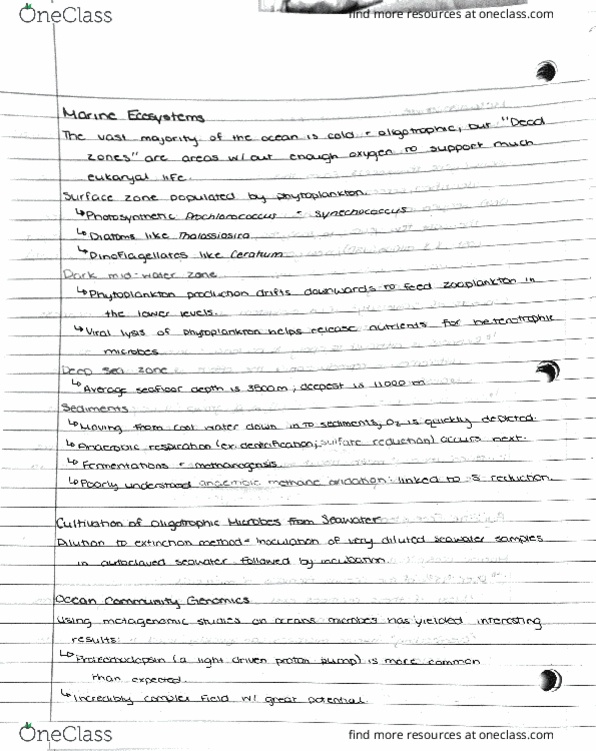 OneClass
find more resources at oneclass.com
Marine Ecosystems
The vast majority of the ocean is cold + oligotrophic, but "Dead
zones" are areas w/out enough oxygen to support much
eukaryal life.
Surface zone populated by phytoplankton.
↳Photosynthetic Prochlorococcus + Synechococcus
↳Diatoms like Thalassiosira
↳Dinoflagellates like Ceratium
Dark mid-water zone
↳Phytoplankton production drifts downwards to feed zooplankton in
the lower levels.
↳Viral lysis of phytoplankton helps release nutrients for heterotrophic
microbes
Deep sea zone
↳Average seafloor depth is 3500m, deepest is 11000 m
Sediments
↳Moving from cool water down into sediments, O₂ is quickly depleted.
↳Anaerobic respiration (ex. denitrification, sulfate reduction) occurs next.
↳Fermentations + methanogensis
↳Poorly understood anaerobic methane oxidation: linked to S reduction.
Cultivation of Oligotrophic Microbes from Seawater
Dilution to extinction method = Inoculation of very diluted seawater samples
in autoclaved seawater followed by incubation.
Ocean Community Genomics
Using metagenomic studies on oceans microbes has yielded interesting
results:
↳Proteorhodopsin (a light driven proton pump) is more common
than expected.
↳Incredibly complex field w/ great potential.
OneClass
find more resources at oneclass.com